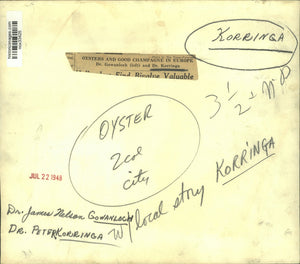 KORRINGA
OYSTERS AND GOOD CHAMPAGNE IN EUROPE
Dr. Gowanloch (left) and Dr. Korringa
Find Bivalve Valuable
OYSTER
2 col
city
3 1/2
JUL 22 1948
Dr. James Nelson GOWANLOCH
DR. PETER KORRINGA
W/ local story KORRINGA